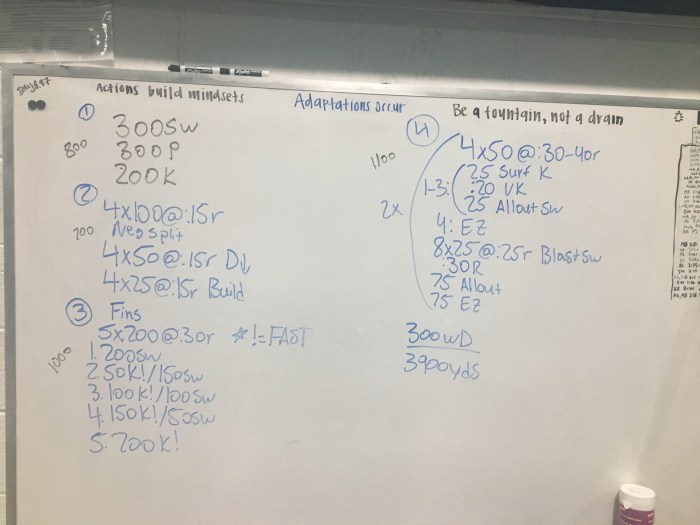 Actions build mindsets
Adaptations occur
Be a fountain, not a drain
1
300SW
800
300P
200K
2
4x100@:15r
Neg split
700
4x50@:15r D↓
4x25@:15r Build
3 Fins
5x200@:30r *!=FAST
1000
1. 200SW
2. 50K!/150SW
3. 100K!/100SW
4. 150K!/50SW
5. 200K!
4
1100
4x50@:30-40r
2x
1-3:
25 Surf K
:20 VK
25 Allout SW
4: EZ
8x25@:25r Blast SW
:30R
75 Allout
75 EZ
300WD
3900yds